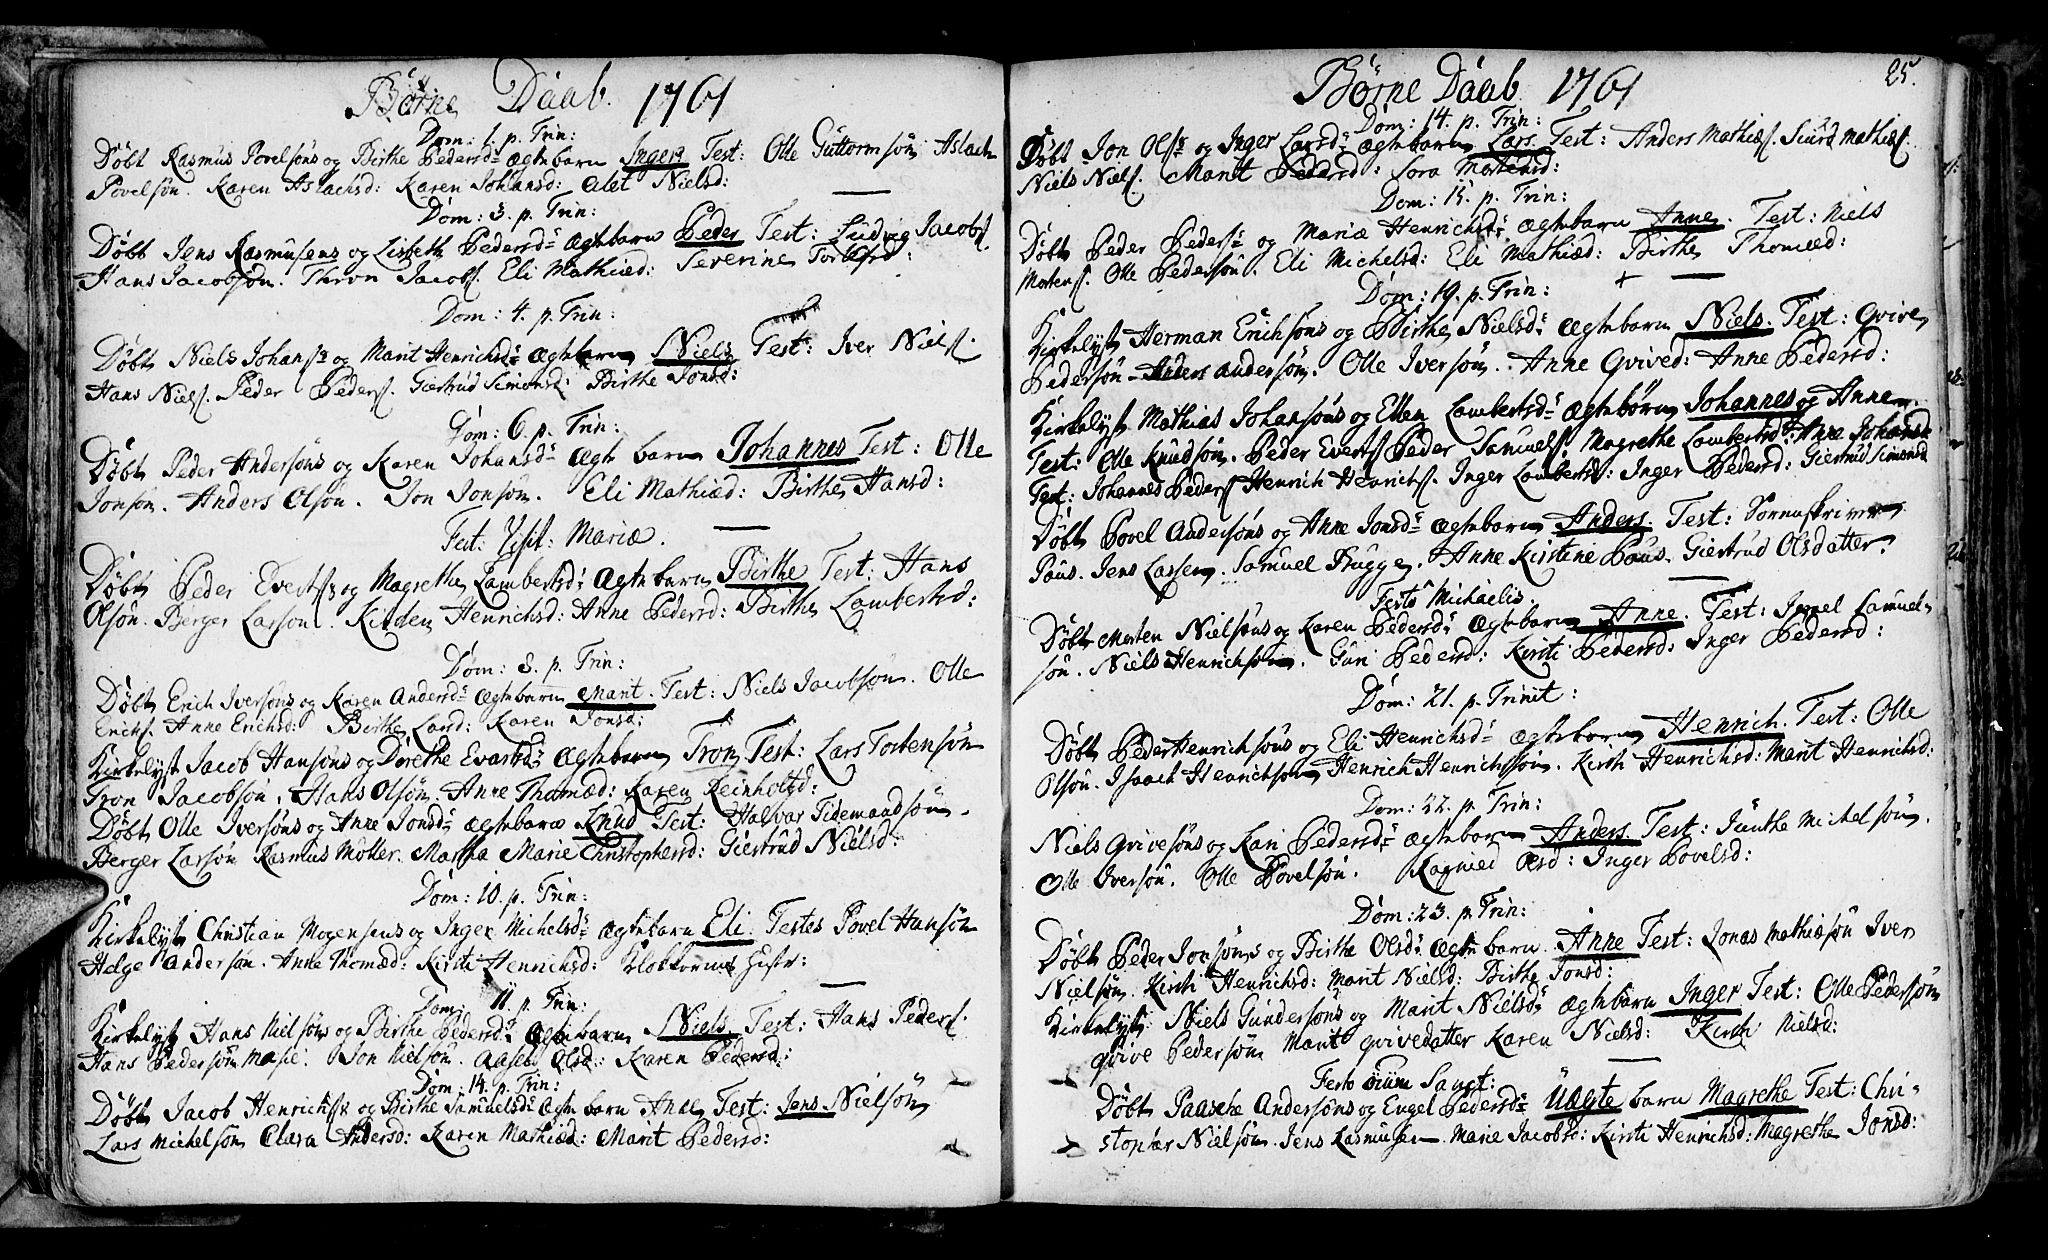 Børne Daab. 1761
Dom: 1. p. Trin:
Døbt Rasmus Povelsøns og Birthe Pedersd: Ægte barn Inger Test: Olle Guttormsøn Aslach
Povelsøn. Karen Aslachsd: Karen Johansd: Alet Nielsd:
Dom: 3. p. Trin:
Døbt Jens Rasmusens og Lisbeth Pedersd: Ægte barn Peder Test: Ludvig Jacobs.
Hans Jacobsøn. Thron Jacobs. Eli Mathiæd: Severine
Dom: 4. p. Trin:
Døbt Niels Johans: og Marit Henrichsd: Ægte barn Niels Test: Iver Niels.
Hans Niels. Peder Peders. Giertrud Simonsd: Birthe Jonsd:
Dom: 6. p. Trin:
Døbt Peder Andersøns og Karen Johansd: Ægte barn Johannes Test: Olle
Jonsøn. Anders Olsøn. Jon Jonsøn. Eli Mathiæd: Birthe Hansd:
Fest: Visit: Mariæ.
Døbt Peder Everts: og Magrethe Lambertsd: Ægte barn Birthe Test: Hans
Olsøn. Berger Larsøn. Henrichsd: Anne Pedersd: Birthe Lambertsd:
Dom: 8. p. Trin:
Døbt Erich Iversøns og Karen Andersd: Ægte barn Marit. Test: Niels Jacobsøn. Olle
Erichs. Anne Erichsd: Birthe Larsd: Karen Jonsd:
Kirkelyst Jacob Hansøns og Dorethe Evartsd: Ægte barn Tron Test: Lars Torbensøn
Tron Jacobsøn. Hans Olsøn. Anne Thomæd: Karen Reinholtsd:
Døbt Olle Iversøns og Anne Jonsd: Ægte barn Knud Test: Halvar Tidemandsøn.
Berger Larsøn Rasmus Møller. Martha Marie Christophersd: Giertrud Nielsd:
Dom: 10. p. Trin:
Kirkelyst Christian Mogensens og Inger Michelsd: Ægte barn Eli. Testes Povel Hansøn
Helge Andersøn. Anne Thomæd: Kirsti Henrichsd: Klokkerens
Dom: 11. p. Trin:
Kirkelyst Hans Nielsøns og Birthe Pedersd: Ægte barn Niels Test: Hans Peders.
Hans Pedersøn Jon Nielsøn. Aase Olsd: Karen Pedersd:
Dom: 14. p. Trin:
Døbt Jacob Henrichs: og Birthe Samuelsd: Ægte barn Anne Test: Jens Nielsøn
Lars Michelsøn Clara Andersd: Karen Mathiæd: Marit Pedersd:
Børne Daab 1761
25.
Dom: 14. p. Trin:
Døbt Jon Ols: og Inger Larsd: Ægte barn Lars. Test: Anders Mathiæs. Siurd Mathiæs.
Niels Niels. Marit Pedersd: Sora Mortensd:
Dom: 15. p. Trin:
Døbt Peder Peders: og Mariæ Henrichsd: Ægte barn Anne. Test: Niels
Mortens. Olle Pedersøn. Eli Michelsd: Eli Mathiæd: Birthe Thomæd:
Dom: 19. p. Trin:
Kirkelyst Herman Erichsøns og Birthe Nielsd: Ægte barn Niels. Test: Qvive
Pedersøn Anders Andersøn. Olle Iversøn. Anne Qvived: Anne Pedersd:
Kirkelyst Mathias Johansøns og Ellen Lambertsd: Ægte børn Johannes og Anne.
Test: Olle Knudsøn. Peder Everts. Peder Samuels. Magrethe Lambertsd: Anne Johansd:
Test: Johannes Peders. Henrich Henrichs. Inger Lambertsd: Inger Pedersd: Giertrud Simonsd
Døbt Povel Andersøns og Anne Jonsd: Ægte barn Anders. Test: Sorenskriver
Paus. Jens Lassen. Samuel Frugge. Anne Kirstine Paus. Giertrud Olsdatter.
Festo Michaelis.
Døbt Morten Nielsøns og Karen Pedersd: Ægte barn Anne. Test: Samuel-
søn. Niels Henrichsøn. Guri Pedersd: Kirsti Pedersd: Inger Pedersd:
Dom: 21. p. Trinit:
Døbt Peder Henrichsøns og Eli Henrichsd: Ægte barn Henrich. Test: Olle
Olsøn. Isaach Henrichsøn Henrich Henrichsøn. Kirsti Henrichsd: Marit Henrichsd:
Dom: 22. p. Trin:
Niels Qvivesøns og Kari Pedersd: Ægte barn Anders. Test: Michelsøn.
Olle Iversøn. Olle Povelsøn. Ragnild Olsd: Inger Povelsd:
Dom: 23. p. Trin:
Døbt Peder Jonsøns og Birthe Olsd: Ægte barn. Anne Test: Jonas Mathiæsøn Iver
Nielsøn. Kirsti Henrichsd: Marit Nielsd: Birthe Jonsd:
Kirkelyst: Niels Gundersøns og Marit Nielsd: Ægte barn Inger Test: Olle Pedersøn
Qvive Pedersøn Marit Qvivedatter Karen Nielsd: Kirsti Nielsd:
Festo oium Sanct:
Døbt Paasche Andersøns og Engel Pedersd: Uægte barn Magrethe Test: Chri-
stopher Nielsøn. Jens Rasmusen. Marie Jacobsd: Kirsti Henrichsd: Magrethe Jonsd: